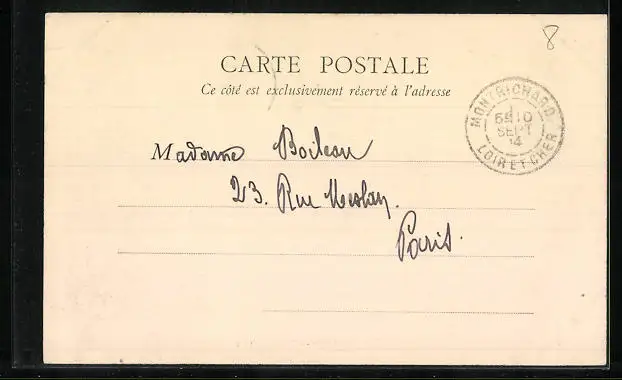 8
CARTE POSTALE
Ce côté est exclusivement réservé à l'adresse
MONTRICHARD
SEPT
14
LOIR ET CHER
Madame Boileau
23. Rue Meslay.
Paris.